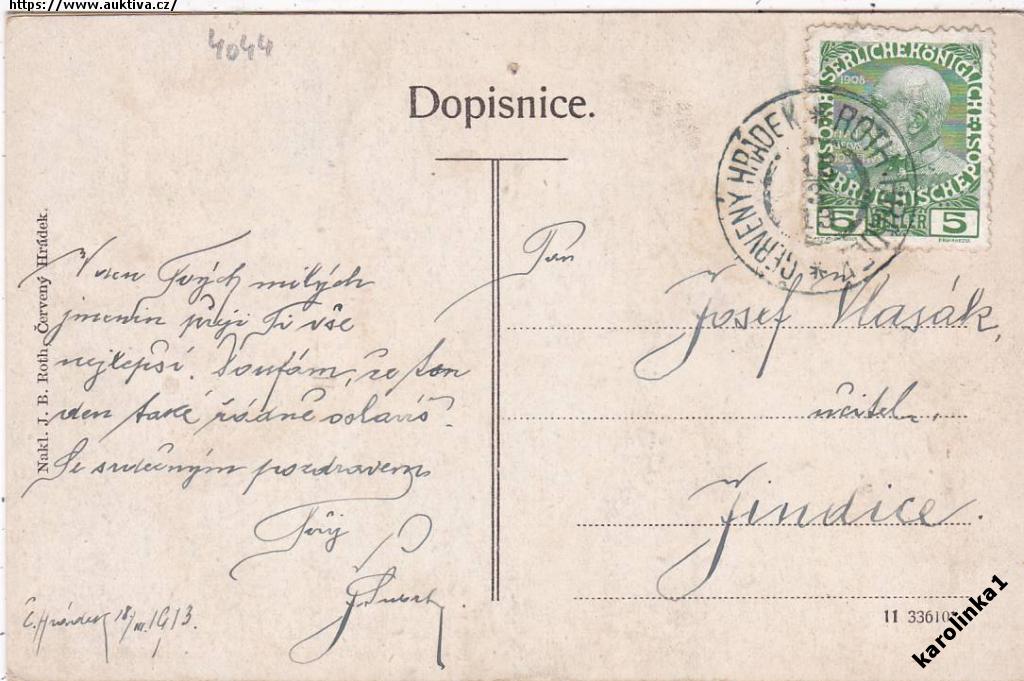 https://www.auktiva.cz/
4044
Dopisnice.
Nakl. J. B. Roth, Červený Hrádek.
V den Tvých milých
jmenin přeji Ti vše
nejlepší. Doufám, že ten
den také řádně oslavíš.
Se srdečným pozdravem
Tvůj
Č. Hrádek 18/III. 1913.
Pan
Josef Vlasák,
učitel,
Jindice.
ČERVENÝ HRÁDEK * ROTH
KAISERLICHE KÖNIGLICHE
ÖSTERREICHISCHE POST
1908
5 HELLER 5
11 33610
karolinka1